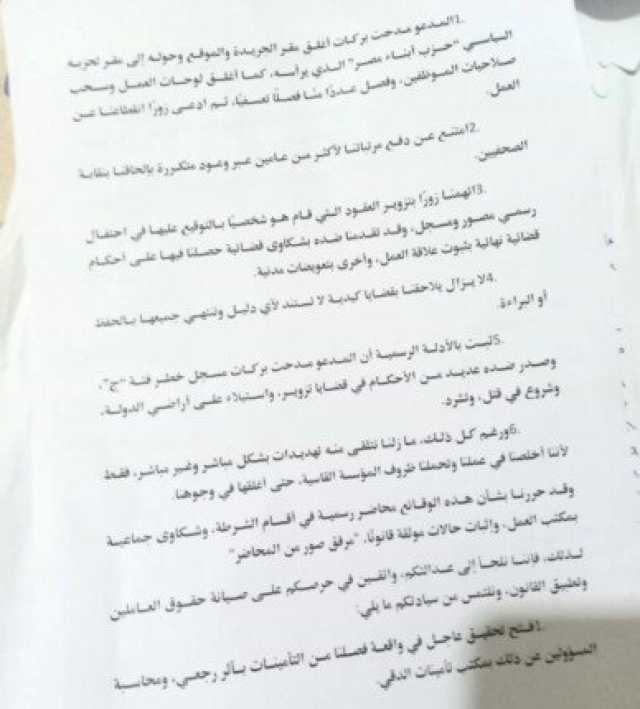 1.المدعو مدحت بركات أغلق مقر الجريدة والموقع وحوله إلى مقر لحزبه
السياسي "حزب أبناء مصر" الذي يرأسه، كما أغلق لوحات العمل وسحب
صلاحيات الموظفين، وفصل عددًا منّا فصلًا تعسفيًا، ثم ادعى زورًا انقطاعنا عن
العمل.
2.امتنع عن دفع مرتباتنا لأكثر من عامين عبر وعود متكررة بإلحاقنا بنقابة
الصحفيين.
3.اتهمنا زورًا بتزوير العقود التي قام هو شخصيًا بالتوقيع عليها في احتفال
رسمي مصور ومسجل، وقد تقدمنا ضده بشكاوى قضائية حصلنا فيها على أحكام
قضائية نهائية بثبوت علاقة العمل، وأخرى بتعويضات مدنية.
4.لا يزال يلاحقنا بقضايا كيدية لا تستند لأي دليل وتنتهي جميعها بالحفظ
أو البراءة.
5.ثبت بالأدلة الرسمية أن المدعو مدحت بركات مسجل خطر فئة "ج"،
وصدر ضده عديد من الأحكام في قضايا تزوير، واستيلاء على أراضي الدولة،
وشروع في قتل، وتشرد.
6.ورغم كل ذلك، ما زلنا نتلقى منه تهديدات بشكل مباشر وغير مباشر، فقط
لأننا أخلصنا في عملنا وتحملنا ظروف المؤسسة القاسية، حتى أغلقها في وجوهنا.
وقد حررنا بشأن هذه الوقائع محاضر رسمية في أقسام الشرطة، وشكاوى جماعية
بمكتب العمل، وإثبات حالات موثقة قانونًا، "مرفق صور من المحاضر"
لذلك، فإننا نلجأ إلى عدالتكم، واثقين في حرصكم على صيانة حقوق العاملين
وتطبيق القانون، ونلتمس من سيادتكم ما يلي:
1.فتح تحقيق عاجل في واقعة فصلنا من التأمينات بأثر رجعي، ومحاسبة
المسؤولين عن ذلك بمكتب تأمينات الدقي.